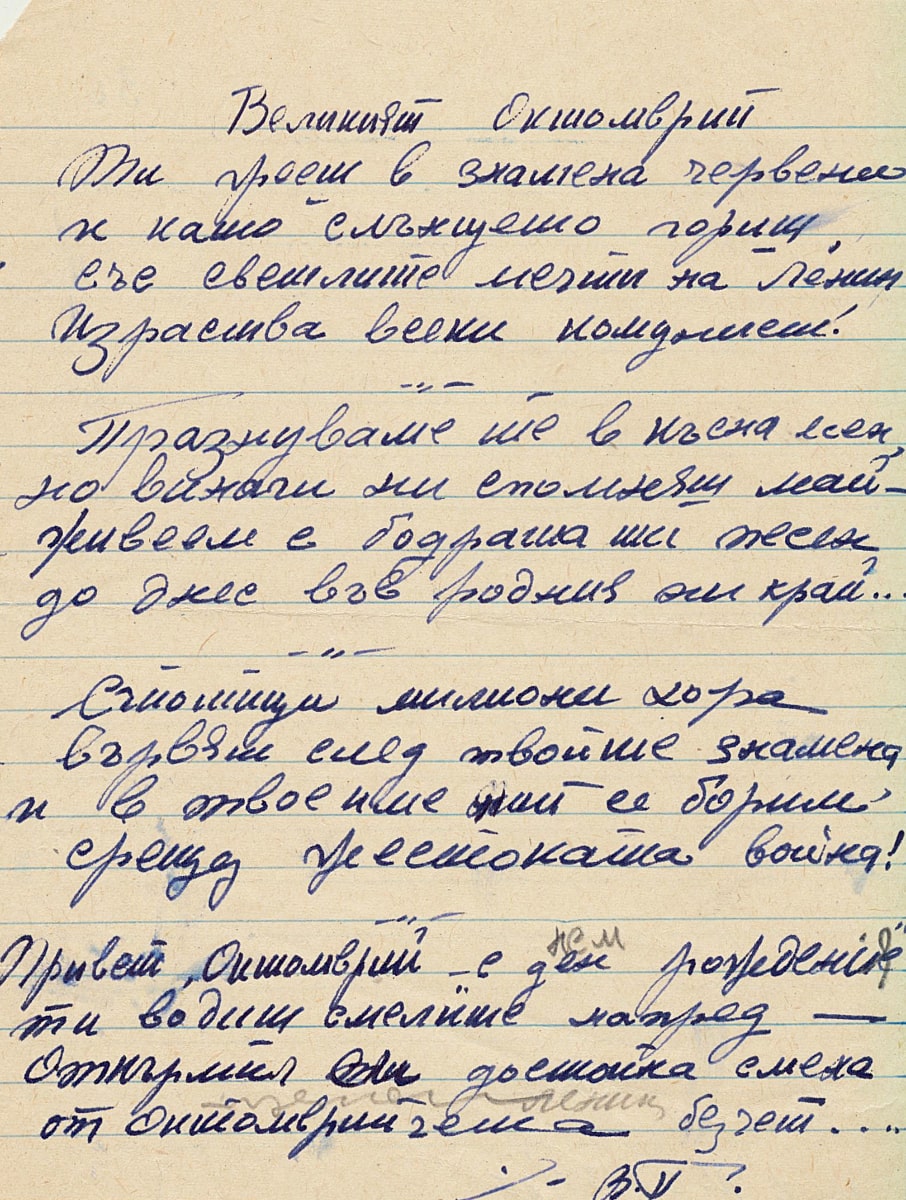 Великият Октомври
Ти грееш в знамена червени
и като слънцето гориш,
със светлите мечти на Ленин
Израства всеки комунист!
-"-
Празнуваме те в късна есен,
но винаги ни спомняш май –
живеем с бодрата ти песен
до днес във родния ни край...
-"-
Стотици милиони хора
вървят след твойте знамена
и в твое име ний се борим
срещу жестоката война!
-"-
Привет, Октомврий – с ден рожденния
нем
ти водиш смелите напред —
Откърмил си достойна смена
Ленин
от Октомврийчета безчет....
В.П.